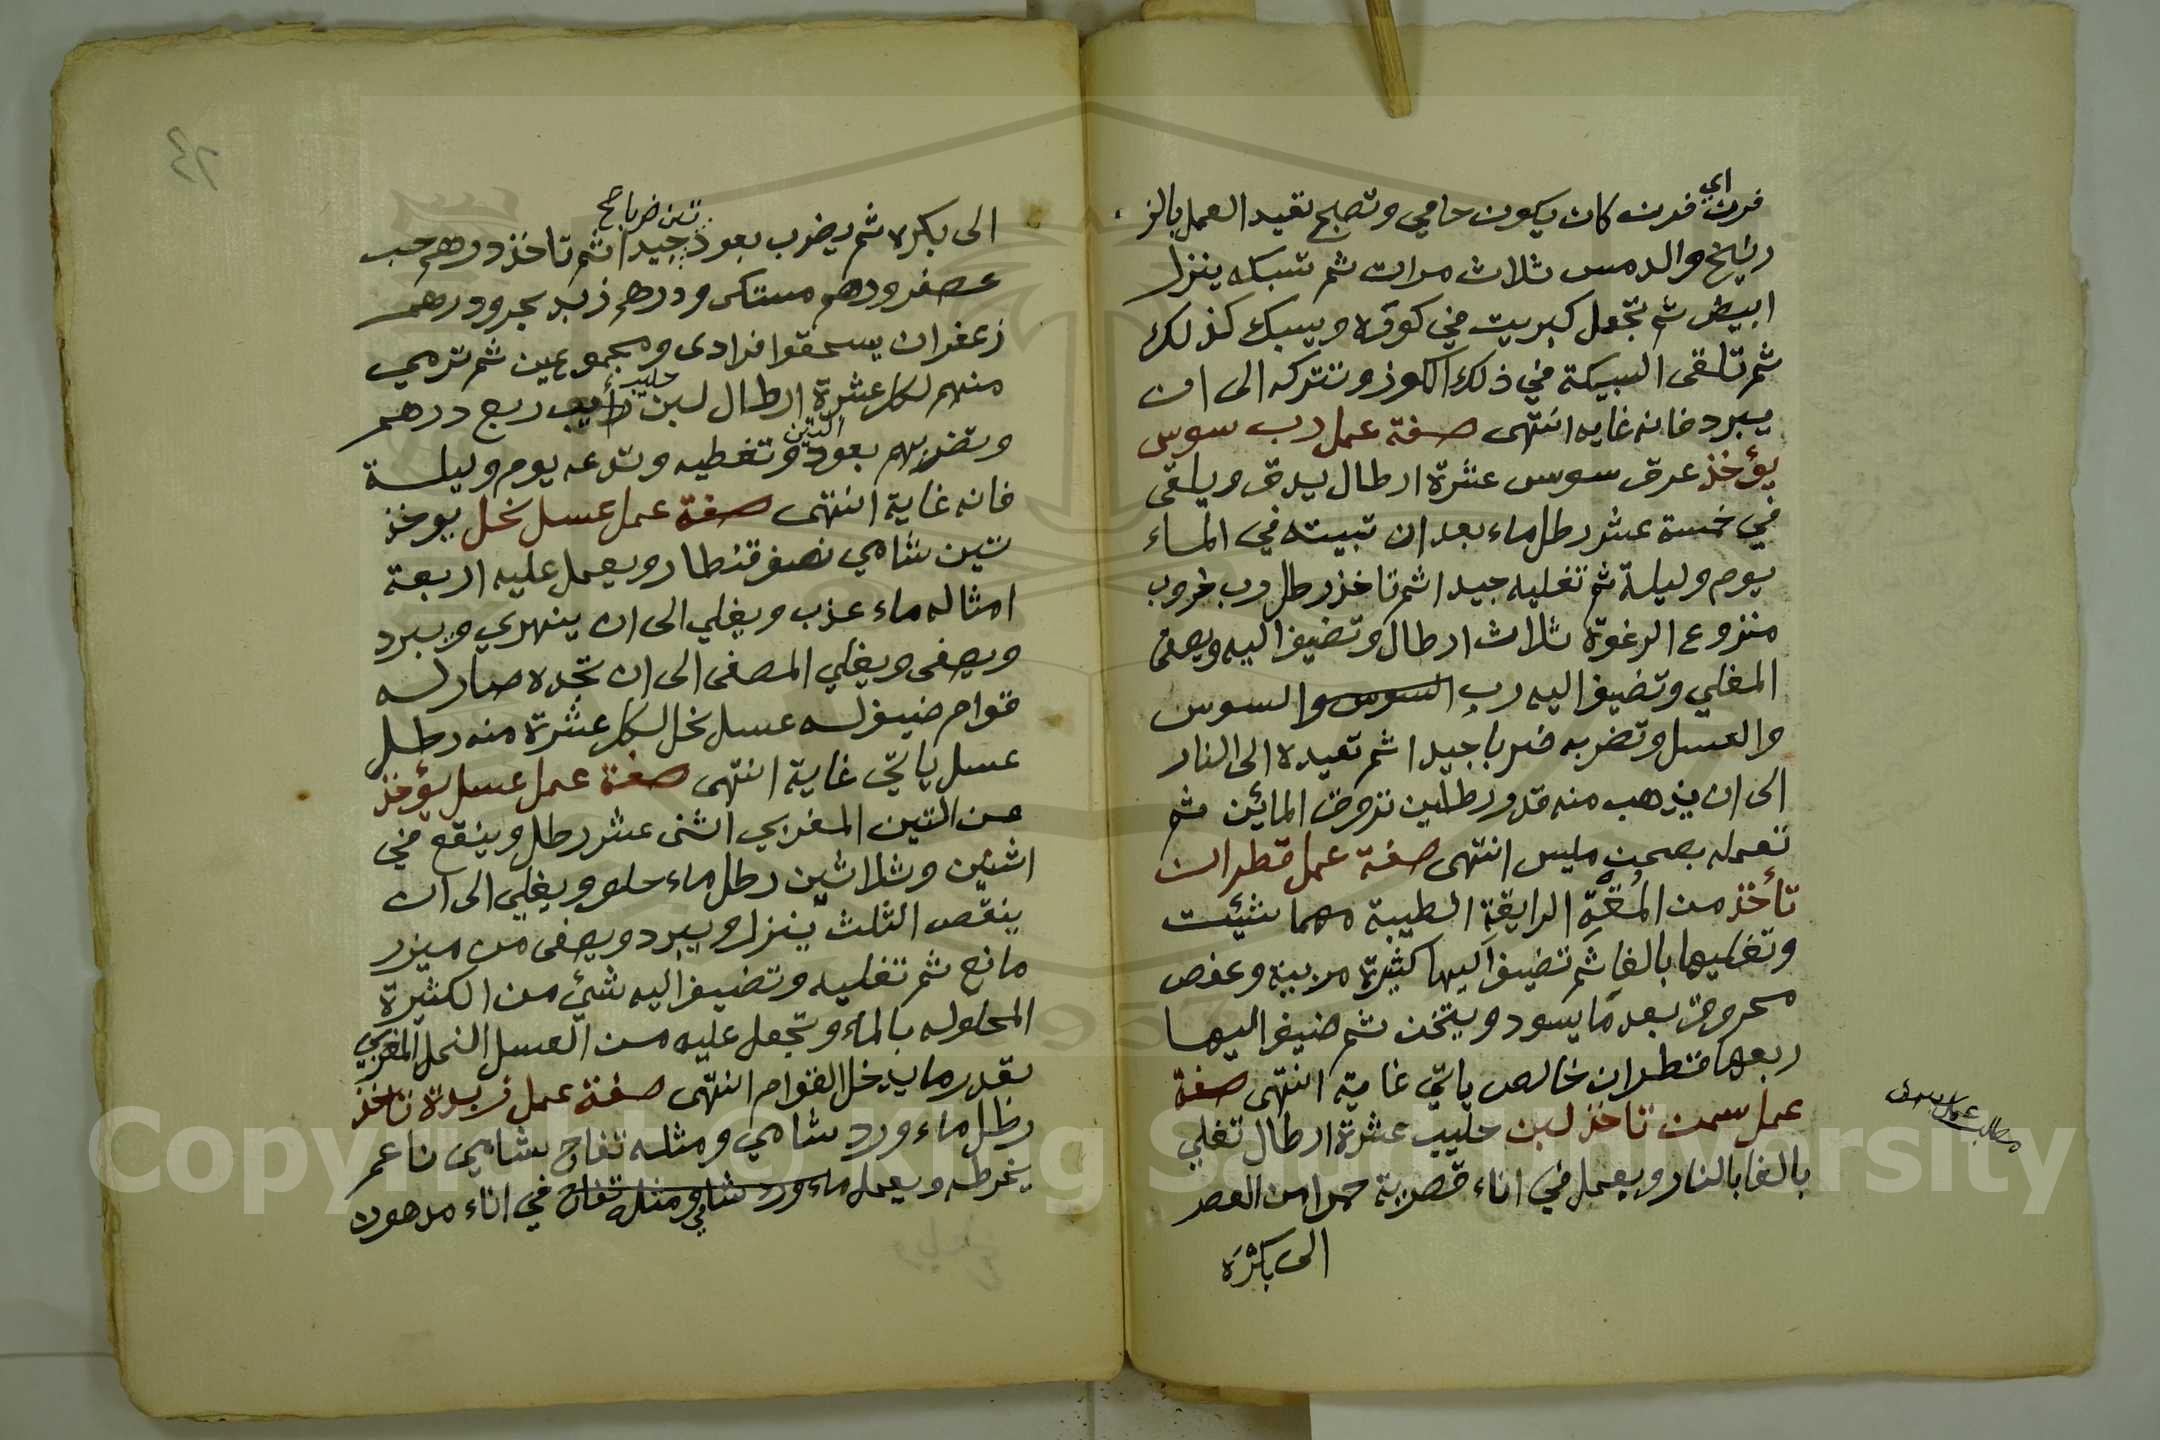 اي
فرن فرن كان يكون حامي وتصبح تعيد العمل بالز
رنيخ والدمس ثلاث مرات ثم تسبكه ينزل
ابيض ثم تجعل كبريت في كوزه ويسبك كذلك
ثم تلقى السبيكة في ذلك الكوز وتتركه الى ان
يبرد فانه غايه انتهى صفة عمل رب سوس
يؤخذ عرق سوس عشرة ارطال يدق ويلقى
في خمسة عشر رطل ماء بعد ان تبيته في الماء
يوم وليلة ثم تغليه جيدا ثم تاخذ رطل رب خروب
منزوع الرغوة ثلاث ارطال وتضيف اليه ويصفى
المغلي وتضيف اليه رب السوس والسوس
والعسل وتضربه ضربا جيدا ثم تعيده الى النار
الى ان يذهب منه قدر رطلين تزحرف المائين ثم
تعمله بصحن مليس انتهى صفة عمل قطران
تأخذ من الرايقة الطيبة مهما شئت
وتغليها بالغا ثم تضيف اليها كثيرة مربية وعفص
محروق بعد ما يسود ويتخن ثم ضيف اليها
ربعها قطران خالص ياتي غاية انتهى صفة
عمل سمن تاخذ لبن حليب عشرة ارطال تغلي
بالغا بالنار ويعمل في اناء قصرية حمرا من العصر
الى بكرة
مطلب عمل السمن
٤٢
الى بكره ثم يضرب بعود جيدا ثم تاخذ درهم حب
تين ضربا صح
عصفر ودرهم مستكى ودرهم زبد بحر ودرهم
زعفران يسحقوا فرادى ومجموعين ثم ترمي
منهم لكل عشرة ارطال لبن رايب ربع درهم
حليب
وتضربهم بعود وتغطيه وتدعه يوم وليلة
التين
فانه غاية انتهى صفة عمل عسل نحل يوخذ
تين شامي نصف قنطار ويعمل عليه اربعة
امثاله ماء عذب ويغلي الى ان ينهري ويبرد
ويصفى ويغلي المصفى الى ان تجده صار له
قوام ضيف له عسل نحل لكل عشرة منه رطل
عسل ياتي غاية انتهى صفة عمل عسل يؤخذ
من التين المغربي اثنى عشر رطل وينقع في
اثنين وثلاثين رطل ماء حلو ويغلي الى ان
ينقص الثلث ينزل ويبرد ويصفى من ميزر
مانع ثم تغليه وتضيف اليه شئ من الكثيرة
المحلوله بالماء وتجعل عليه من العسل النحل المغربي
بقدر ما يدخل القوام انتهى صفة عمل زبدة تاخذ
رطل ماء ورد شامي ومثله تفاح شامي ناعم
يخرطه ويعمل ماء ورد شامي ومثله تفاح في اناء مدهون